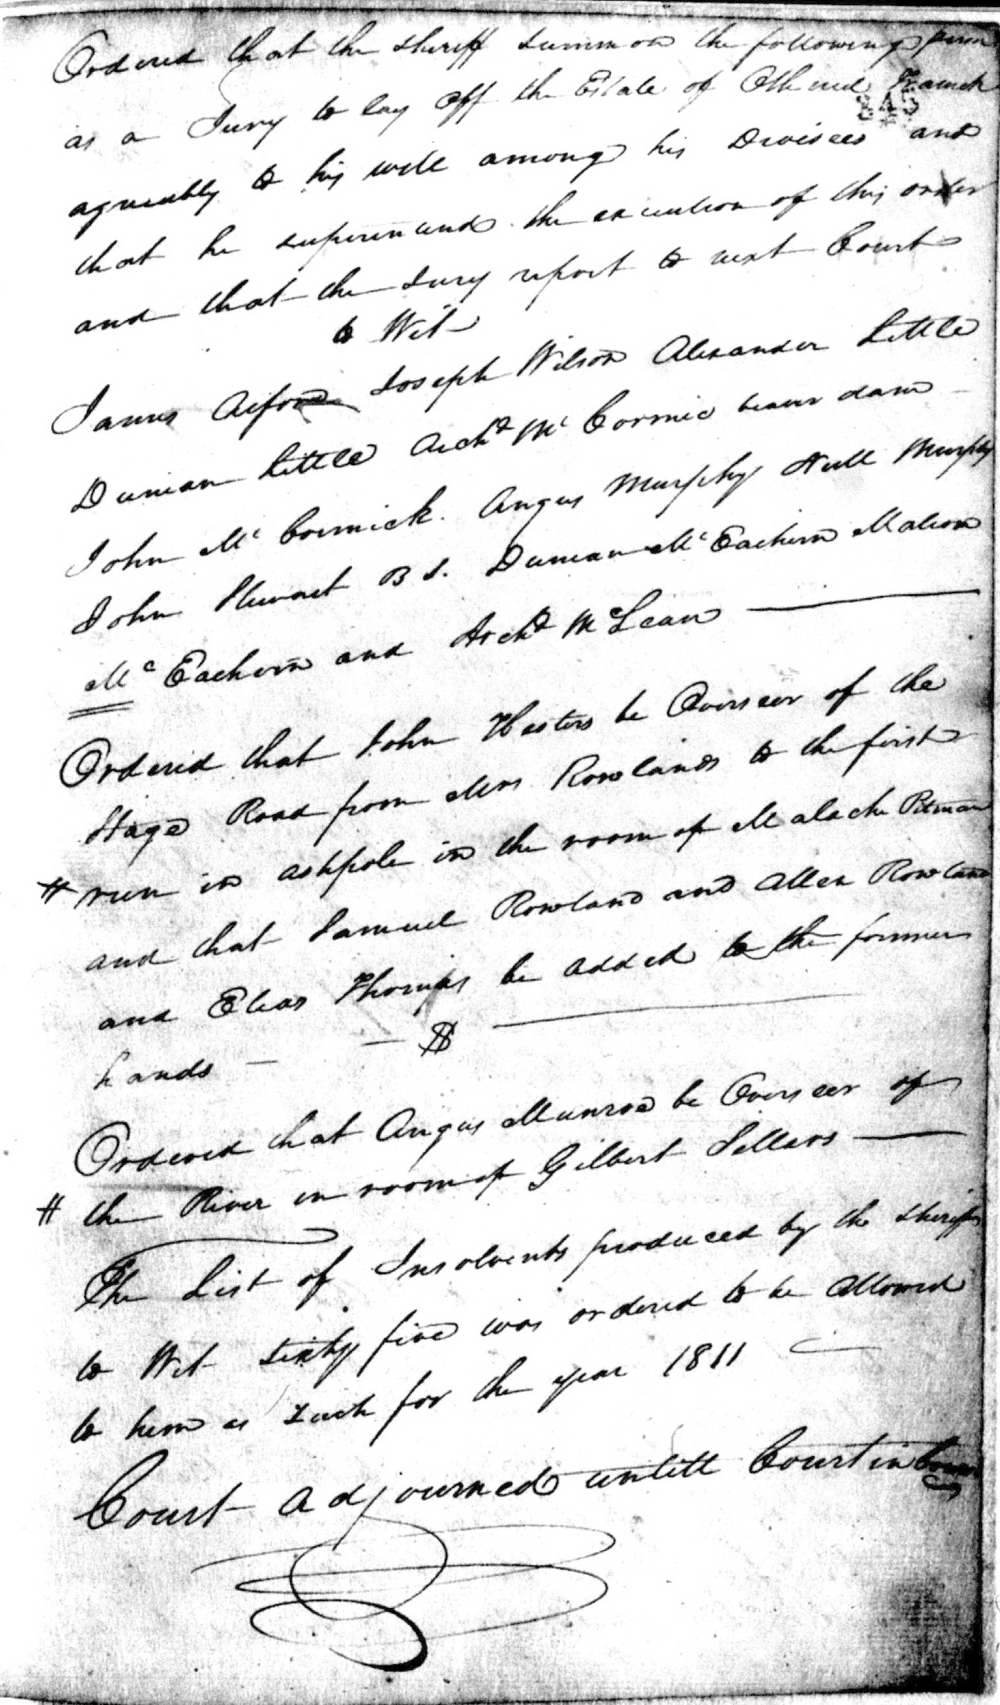 Ordered that the Sheriff Summon the following
345
as a Jury to lay off the Estate of
agreeably to his will among his Devisees and
that he superintend the execution of this order
and that the Jury report to next Court
to Wit
James Alford Joseph Wilson Alexander Little
Duncan Little Archd McCormic beaver dam
John McCormick. Angus Murphy Neill Murphy
John Stewart B S. Duncan McEachern Malcom
McEachern and Archd McLean
Ordered that John Hesters be Overseer of the
Stage Road from Mrs Rowlands to the first
# run in ashpole in the room of Malache Pitman
and that Samuel Rowland and Allen Rowland
and Elias Thomas be added to the former
hands
Ordered that Angus Munroe be Overseer of
# the River in room of Gilbert Sellars
The List of Insolvents produced by the Sheriff
to Wit Sixty five was ordered to be allowed
to him as Such for the year 1811
Court adjourned untill Court in Course